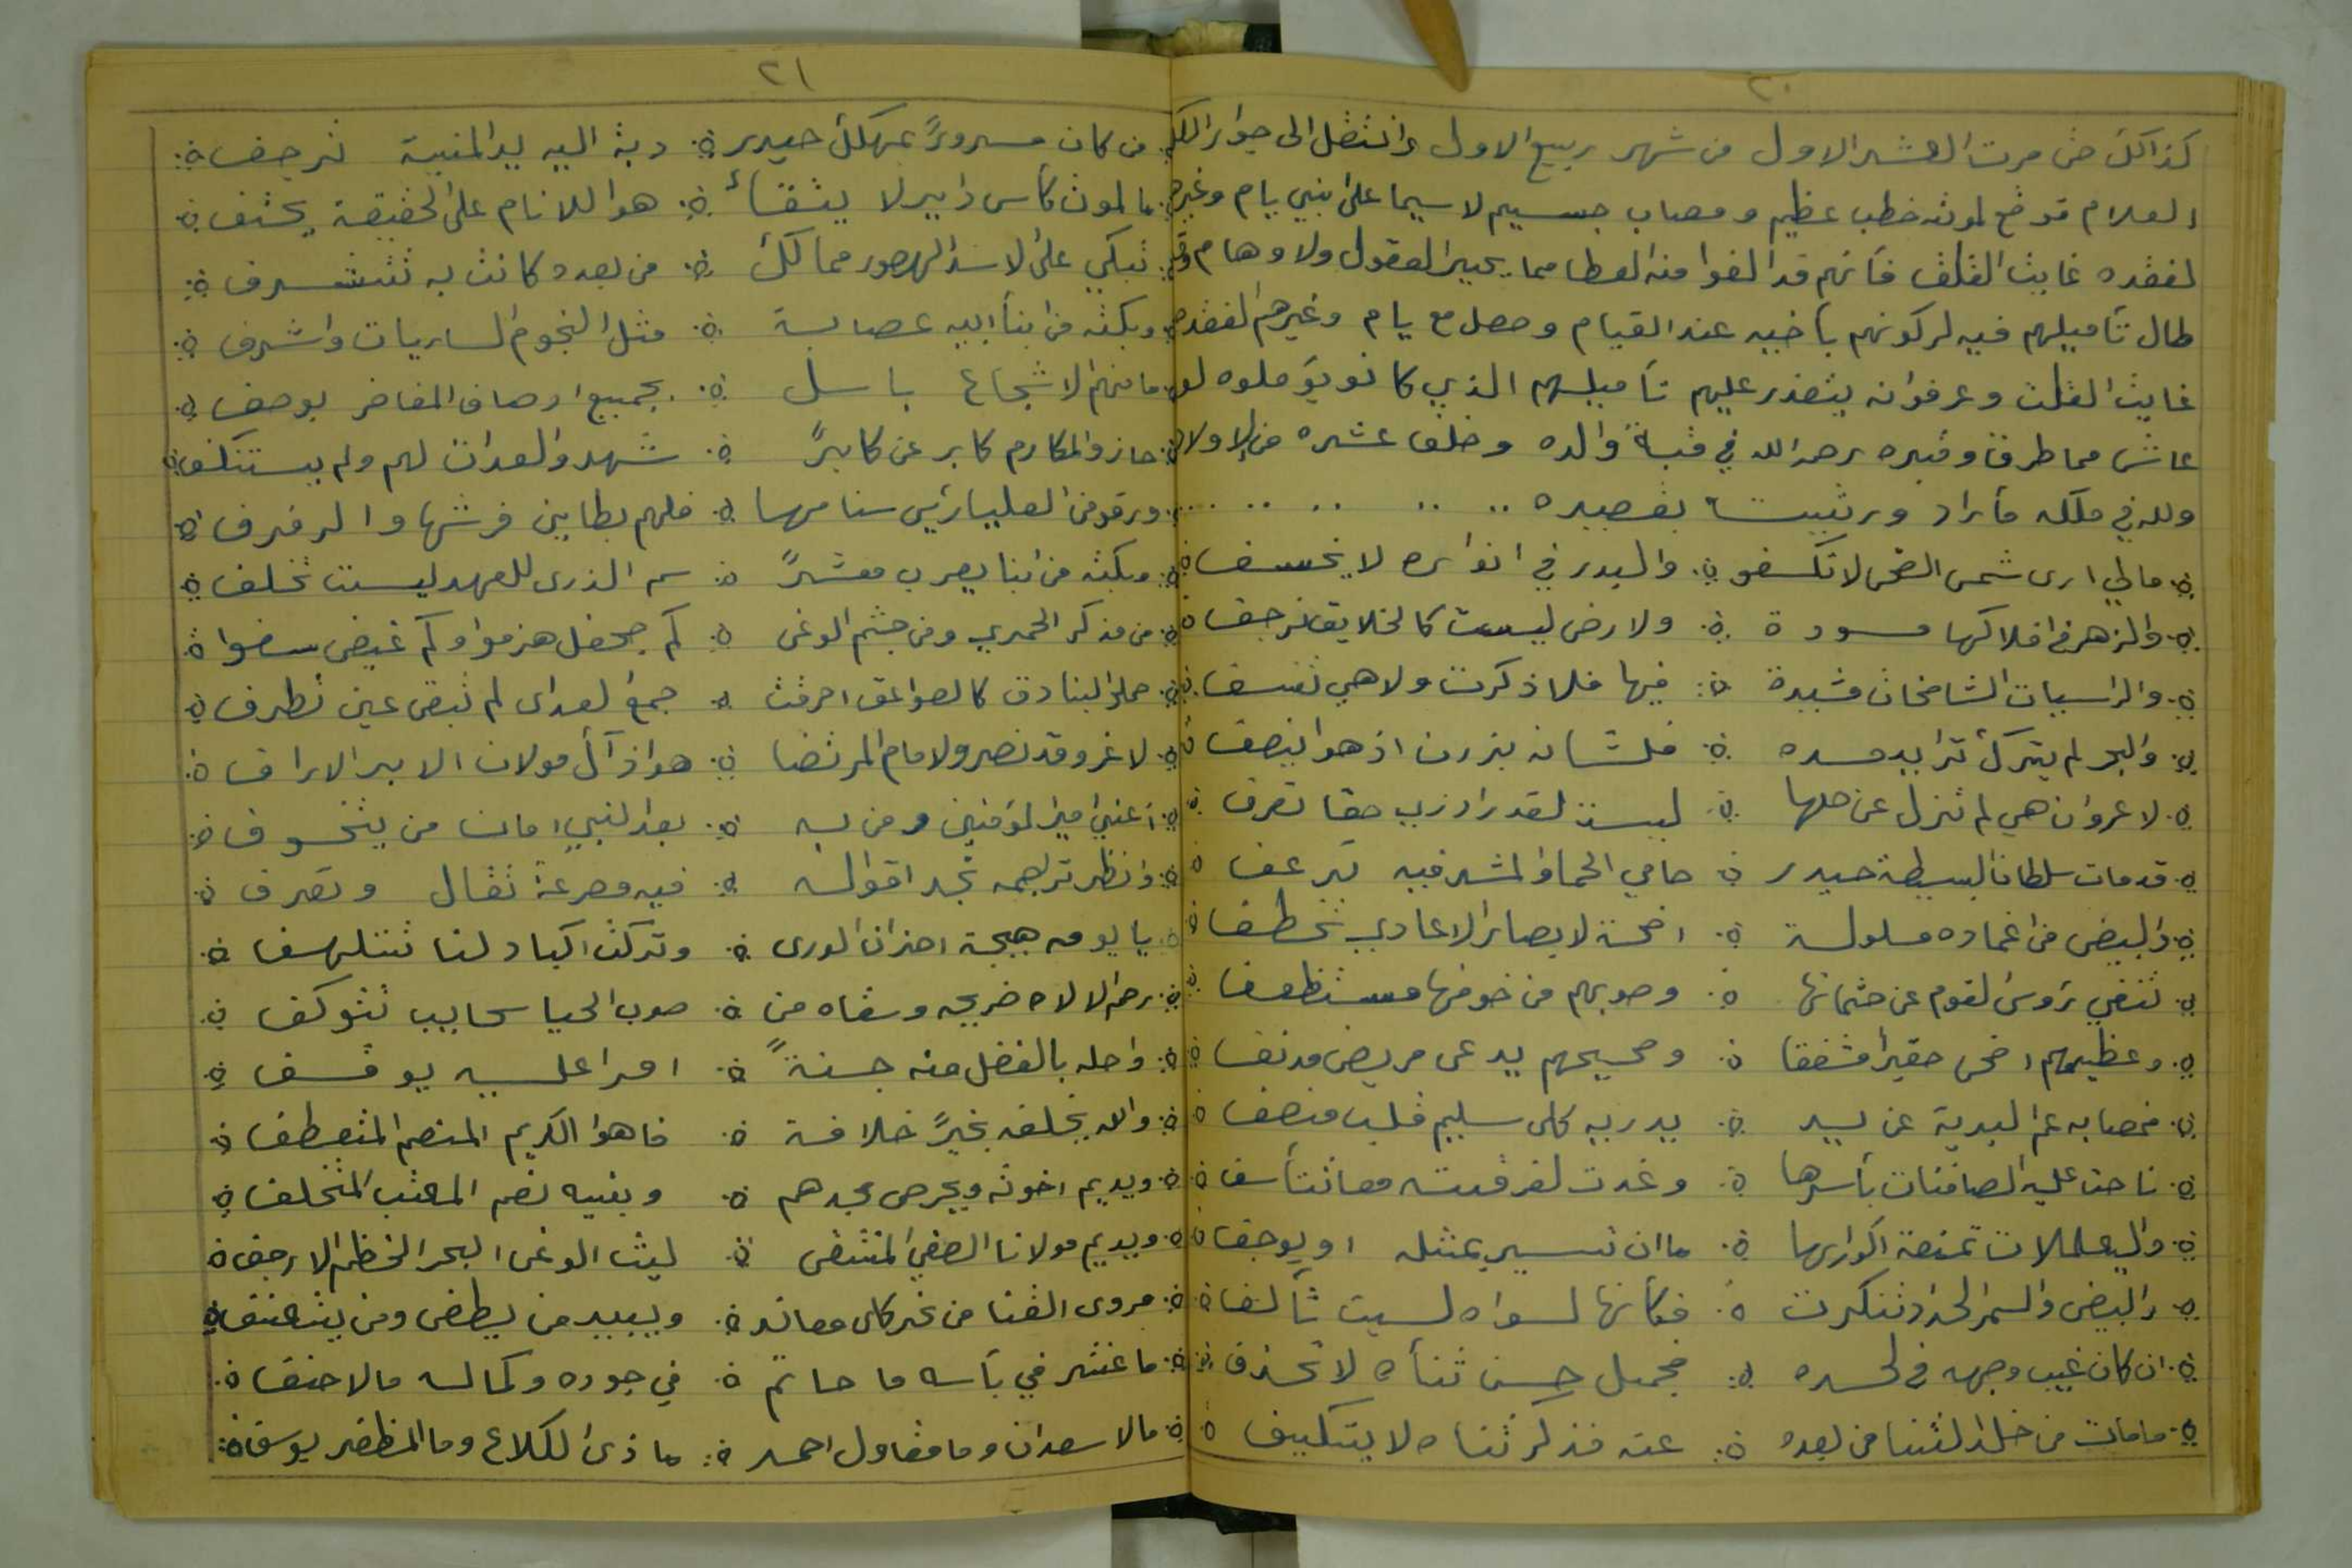 ٢٠
كذالك حتى مرت العشر الاول من شهر ربيع الاول وانتقل الى جوار الملك
العلام قد وقع لموته خطب عظيم ومصاب جسيم لاسيما على بني يام وغيرهم
لفقده غايت القلق فأنهم قد الفوا منه العطا مما يحير العقول ولاوهام وقد
طال تأميلهم فيه لركونهم بأخيه عند القيام وحصل مع يام وغيرهم لفقده
غايت القلت وعرفوا انه يتعذر عليهم تأميلهم الذي كانو يؤملوه لو
عاش مما طرق وقبره رحمه الله في قبة والده وخلف عشره من الاولاد
ولله في ملكه ما أراد ورثيت بقصيده
مالي ارى شمس الضحى لا تكسفو والبدر في انواره لا يخسف
والزهر في افلاكها مسودة ولارض ليست كالخلايق ترجف
والراسيات الشامخات مشيدة فيها فلا ذكرت ولا هي تنسف
والبحر لم يترك تزايد مده
لا غرو ان هي لم تنزل عن حلها
قد مات سلطان البسيطة حيدر حامي الحما والمشرفيه ترعف
والبيض من اغماده مسلولة اضحة لابصار الاعادي تخطف
تنفي رؤس القوم عن جثمانها
وعظيمهم اضحى حقيراً وصحيحهم يدعى مريض مدنف
فمصابه عم البرية عن يد يدريه كلى سليم قلب منصف
ناحت عليه الصافنات بأسرها وغدت لفرقته معا تتأسف
واليعملات تمنعة اكوارها ما ان تسير بمثله او يوجف
والبيض والسمر الحداد تنكرت فكأنها لسواه ليست تألف
ان كان غيب وجهه في لحده فجميل حسن ثناه لا تحذف
ما مات من خلد الثنا من بعده عنه فذكر ثناه لا يتكيف
٢١
من كان مسروراً بمهلك حيدر دبة اليه يد المنية ترجف
مالموت كأس داير لا يتقأ هوا للانام على الحقيقة يحتف
تبكي على لاسد الهصور ممالك من بعده كانت به تتشرف
وبكته من ابنأ ابيه عصابة مثل النجوم الساريات واشرف
ما منهم الا شجاع باسل بجميع اوصاف المفاخر يوصف
حازو المكارم كابر عن كابراً شهدو العدات لهم ولم يستنكف
ورقو من العليا سنامها فلهم بطاين فرشها والرفرف
وبكته من ابنا يعرب معشراً سم الذرى للعهد ليست تخلف
من مذكر الحمري ومن جشم الوغى كم جحفل هزموا وكم غيض
حملو البنادق كالصواعق احرقت جمع لعداى لم تبقى عين تطرف
لا غرو قد نصرو لامام المرتضا
أعني امير المؤمنين ومن به بعد النبي امان من يتخوف
وانظر ترجمه تجد اقواله فيه مصرعة تقال وتعرف
يا يومه هيجة احزان الورى وتركت اكباد لنا تتلهف
رحم الالاه ضريحه وسقاه من صوب الحيا سحايب تتوكف
واحله بالفضل منه جنةً
والله يخلفه بخيراً خلافة فاهوا الكريم المنعم المتعطف
ويديم اخوته ويحرص مجدهم وبنيه نعم المعتب المتخلف
ويديم مولانا الصفي المنتقى ليث الوغى البحر الخظم
مروى القنا من نحر كلى معاند ويبيد من يطغى ومن يتعنف
ما عنتر في بأسه ما حاتم في جوده وكماله مالاحنف
مالاسعدان وما مقاول احمد ما ذى الكلاع وما المظفر يوسف